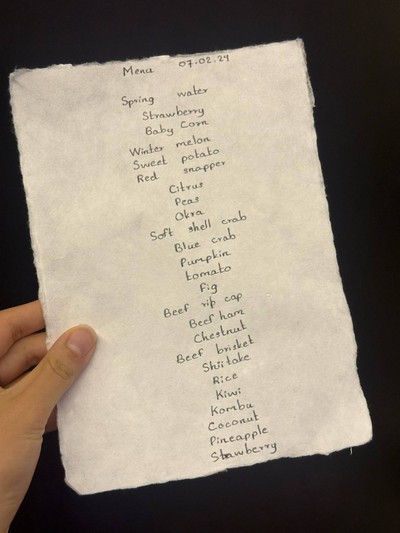 Menu 07.02.24
Spring water
Strawberry
Baby Corn
Winter melon
Sweet potato
Red snapper
Citrus
Peas
Okra
Soft shell crab
Blue crab
Pumpkin
tomato
Fig
Beef rib cap
Beef ham
Chestnut
Beef brisket
Shiitake
Rice
Kiwi
Kombu
Coconut
Pineapple
Strawberry